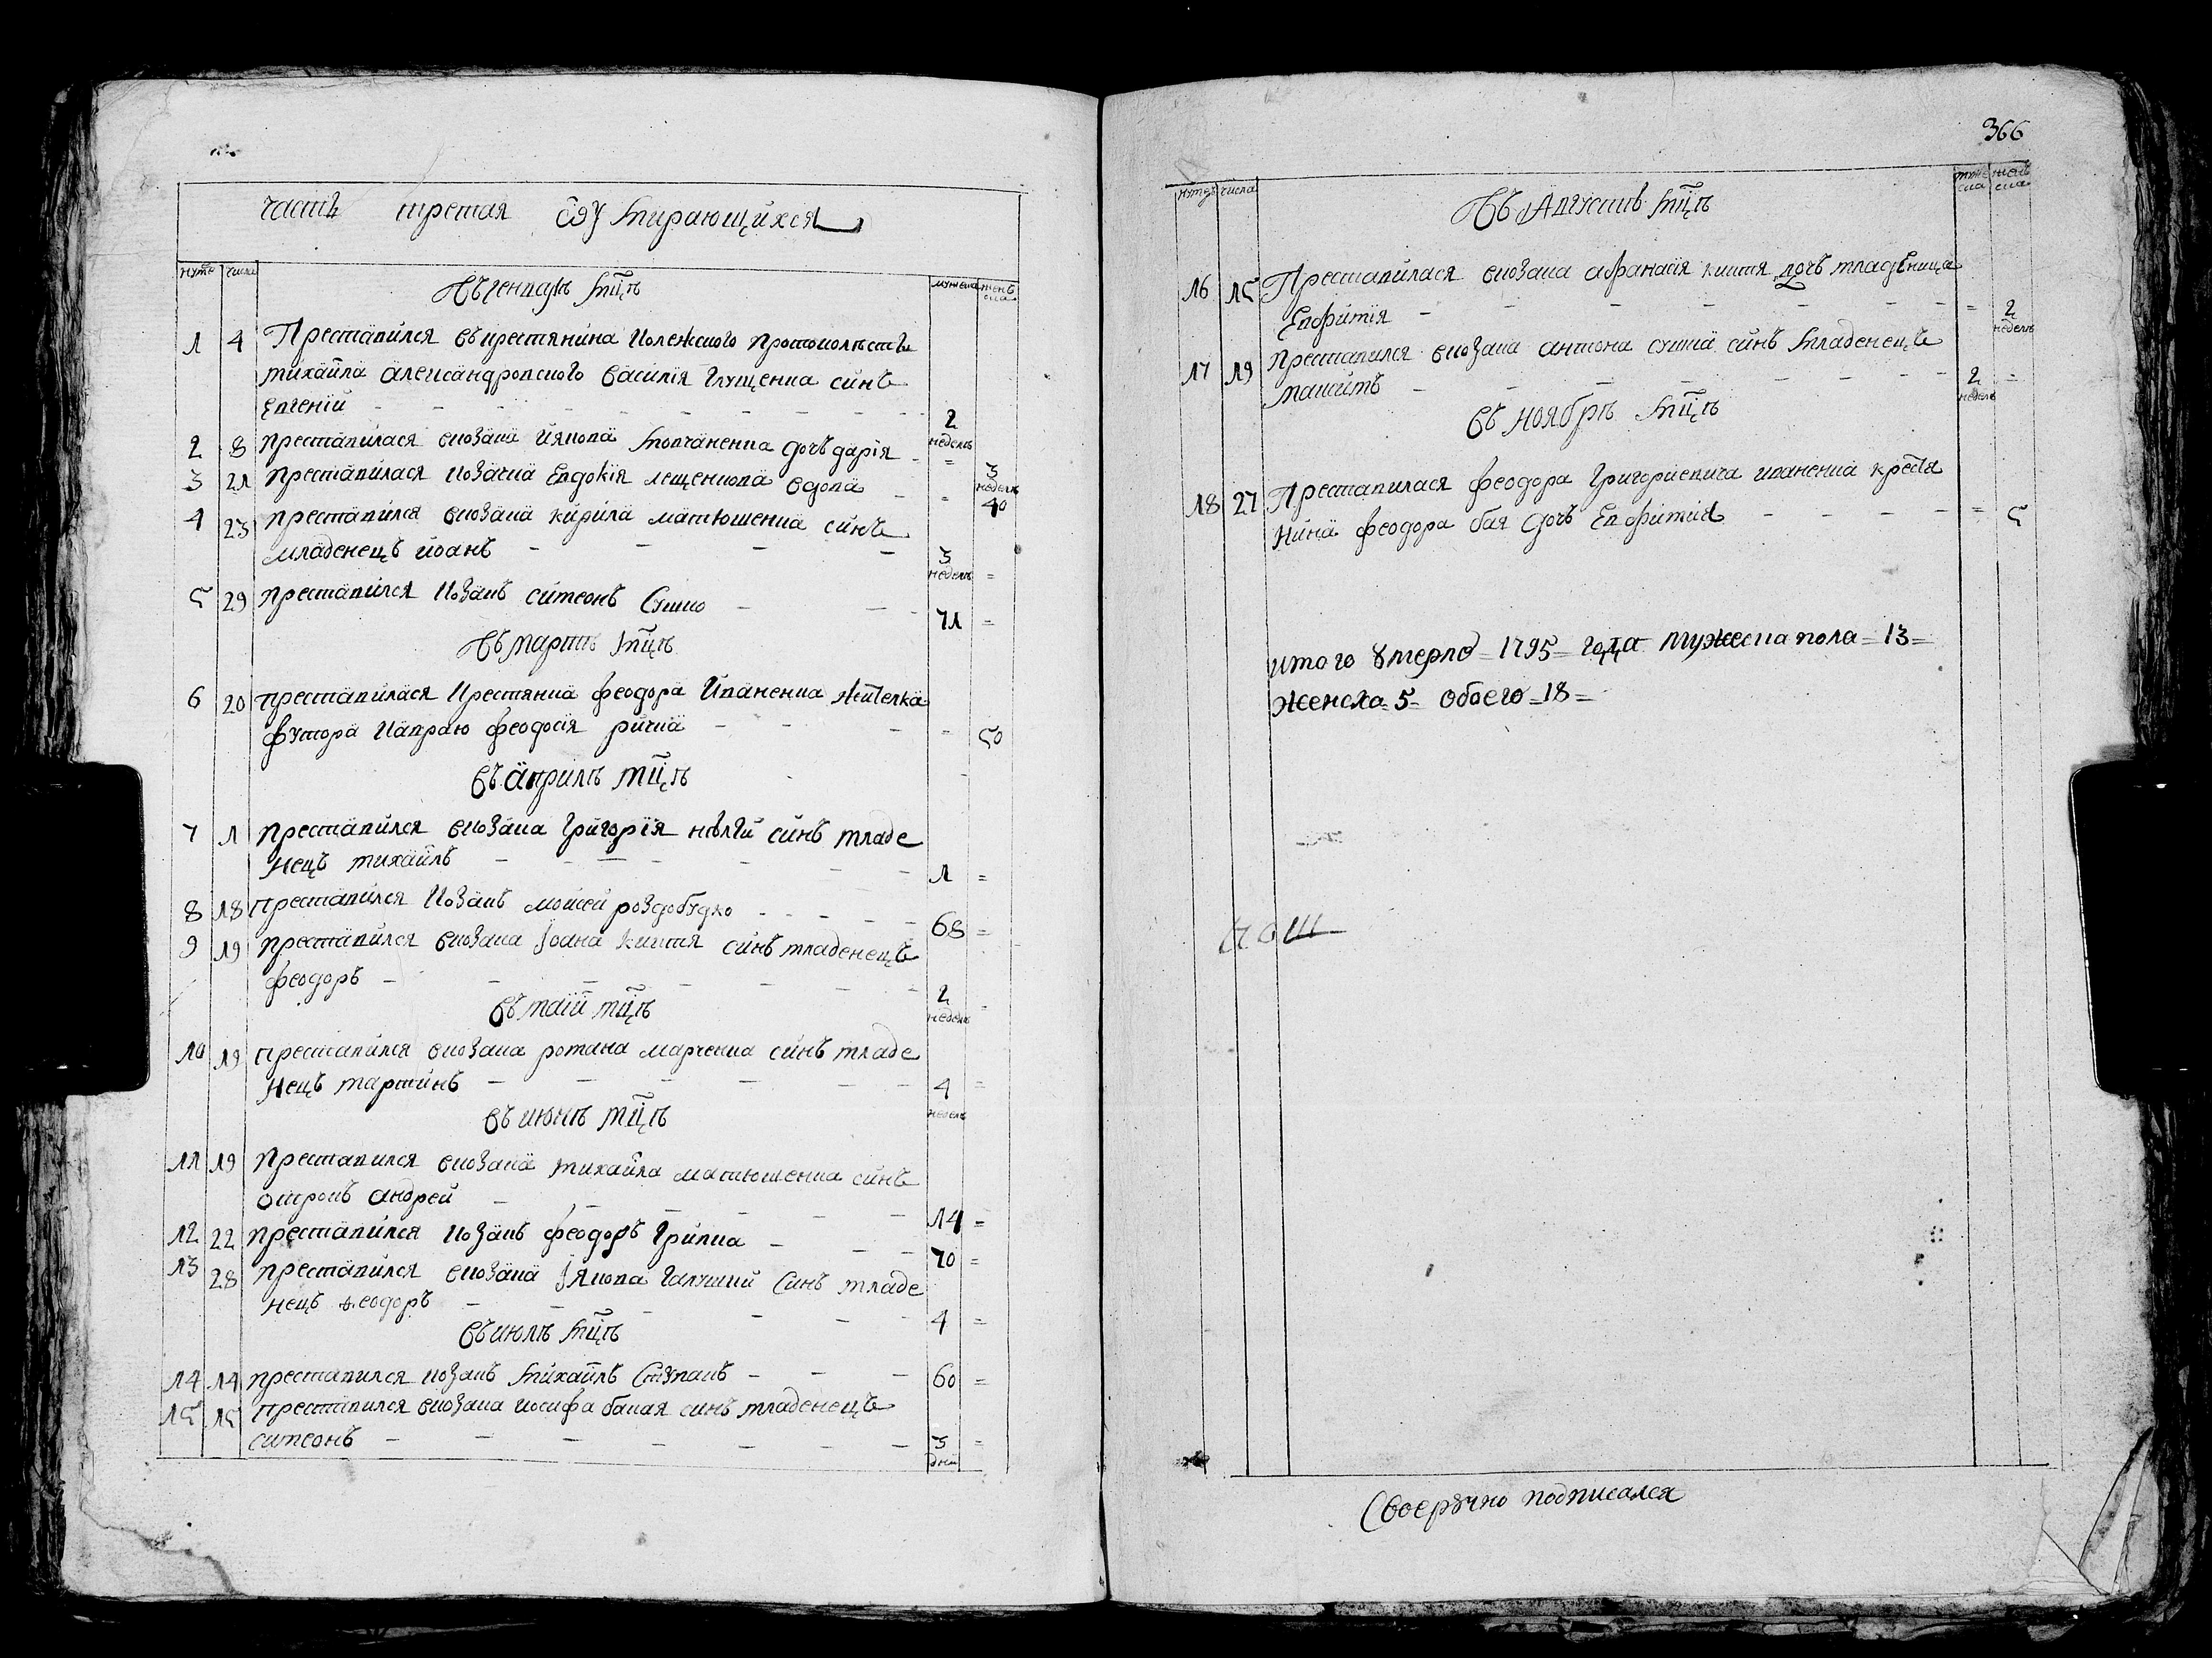 часть третая ѿ умирающихся
нумер числа
мужеска женъ ска
Въ генварѣ мцѣ
1 4 Преставился въ крестянина Колежского протоколиста
михаила александровского василия глущенка синъ
Евгений 2 недель
2 8 преставилася вкозака иякова мовчаненка дочъ дария = 3 недель
3 21 преставилася козачка Евдокия лещенкова вдова = 40
4 23 преставился вкозака кирила матюшенка синъ
младенецъ иоанъ 3 недель =
5 29 преставился козакъ симеонъ Сушко 71 =
Въ мартѣ мцѣ
6 20 преставилася крестянка феодора Иваненка жителка
футора феодосия = 50
Въ априлѣ мцѣ
7 1 преставился вкозака григория синъ младе
нецъ михаилъ 1 =
8 18 преставился козакъ моисей роздобудко 68 =
9 19 преставился вкозака Iоана кишмя синъ младенецъ
феодоръ 2 недель =
въ маии мцѣ
10 19 преставился вкозака романа марченка синъ младе
нецъ мартинъ 4 недель =
въ июнѣ мцѣ
11 19 Преставился вкозака михаила матюшенка синъ
отрокъ андрей 14 =
12 22 преставился козакъ феодоръ Грипка 70 =
13 28 преставился вкозака Iякова галушки синъ младе
нецъ феодоръ 4 =
въ июлѣ мцѣ
14 14 преставился козакъ михаилъ Ступакъ 60 =
15 15 преставился вкозака иосифа бакая синъ младенецъ
симеонъ 3 дни =
366
нумер числа
муже ска женъ ска
Въ Августѣ мцѣ
16 15 Преставилася вкозака афанасия кишмя дочъ младеница
Евфимия = 2 недель
17 19 преставился вкозака антона сушка синъ младенецъ
максимъ 2 недель =
въ ноябрѣ мцѣ
18 27 Преставилася феодора Григориевича иваненка крестя
нина феодора бая дочъ Евфимия = 5
итого умерло 1795 года мужеска пола 13
женска 5 обоего 18
Своеручно подписался